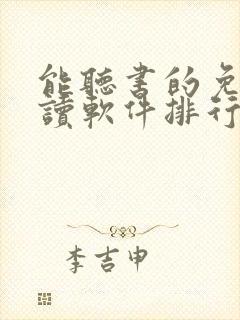 能聽書的免
讀軟件排行
李吉申